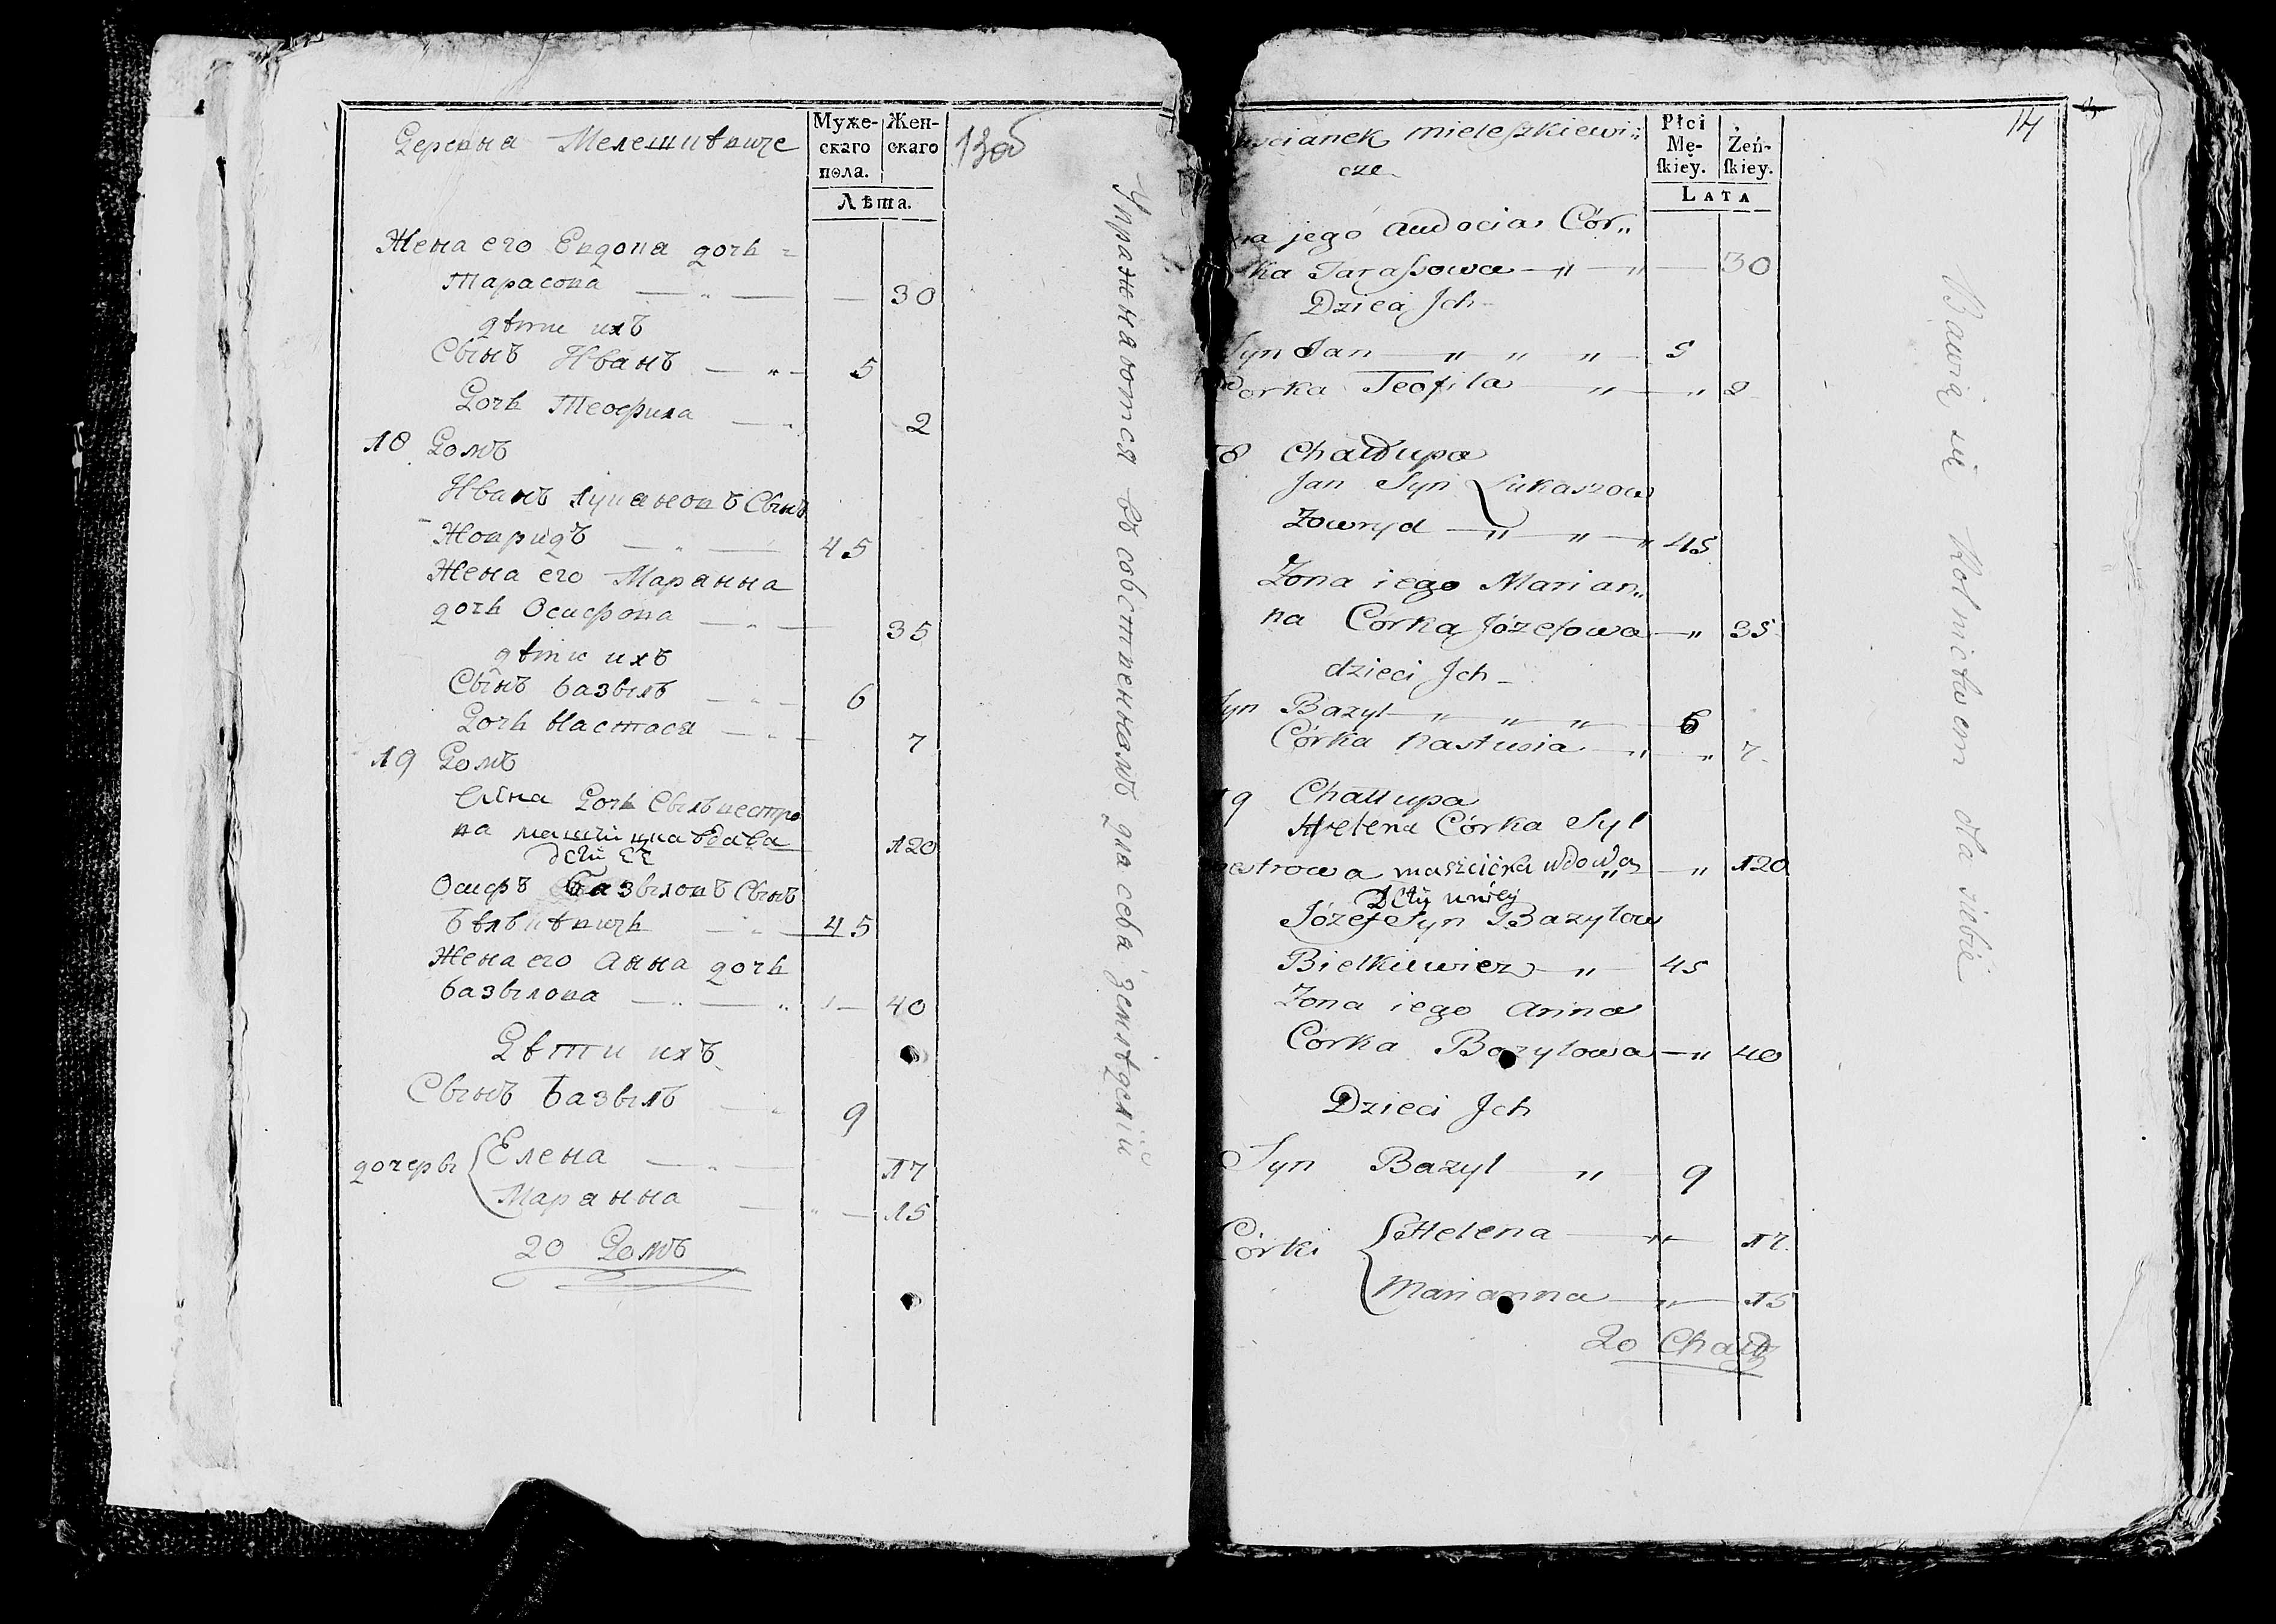 Деревня Мелешкѣвиче
Муже-
скаго
пола.
Жен-
скаго
Лѣта.
13об
Жена его Евдоца дочь =
Тарасова 30
дѣти ихъ
Сынъ Иванъ 5
Дочь Теофила 2
18 Домъ
Иванъ Лукашовъ Сынъ
Жовридъ 45
Жена его Марянна
дочь Осифова 35
дѣти ихъ
Сынъ Базылъ 6
Дочь Настася 7
19 Домъ
Елена Дочь Сылвестро
ва вдава 120
Осифъ Базыловъ Сынъ
Бѣлькѣвичь 45
Жена его Анна дочь
Базылова 40
Дѣти ихъ
Сынъ Базылъ 9
дочеры Елена 17
Марянна 15
20 Домъ
Упражняются въ собственномъ для себа земледелій
14
scianek mieleszkiewi„
cze
Płci
Mę-
skiey.
Żeń-
skiey.
LATA
na jego Audocia Cór„
ka Tarassowa 30
Dzieci Jch
Syn Jan 5
Corka Teofila 2
18 Chałłupa
Jan Syn Łukaszow
Zowryd 45
Zona iego Marian„
na Córka Józefowa 35
dzieci Jch
Syn Bazyl 6
Córka Nastusia 7
19 Chałłupa
Helena Córka Syl
estrowa maszcicka wdowa 120
Józef Syn Bazylow
Bielkiewicz 45
Zona iego Anna
Córka Bazylowa 40
Dzieci Jch
Syn Bazyl 9
Córki Helena 17
Marianna 15
20 Chałł
Bawią się Rolnictwem dla siebie